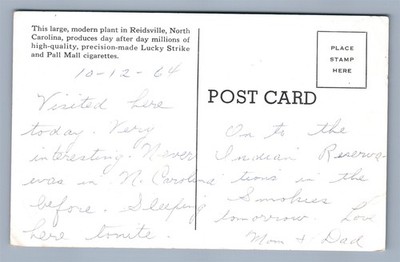 This large, modern plant in Reidsville, North
Carolina, produces day after day millions of
high-quality, precision-made Lucky Strike
and Pall Mall cigarettes.
10-12-64
Visited here
today. Very
interesting. Never
was in N. Carolina
before. Sleeping
here tonite.
PLACE
STAMP
HERE
POST CARD
On to the
Indian Reserva-
tions in the
Smokies
tomorrow. Love
Mom & Dad